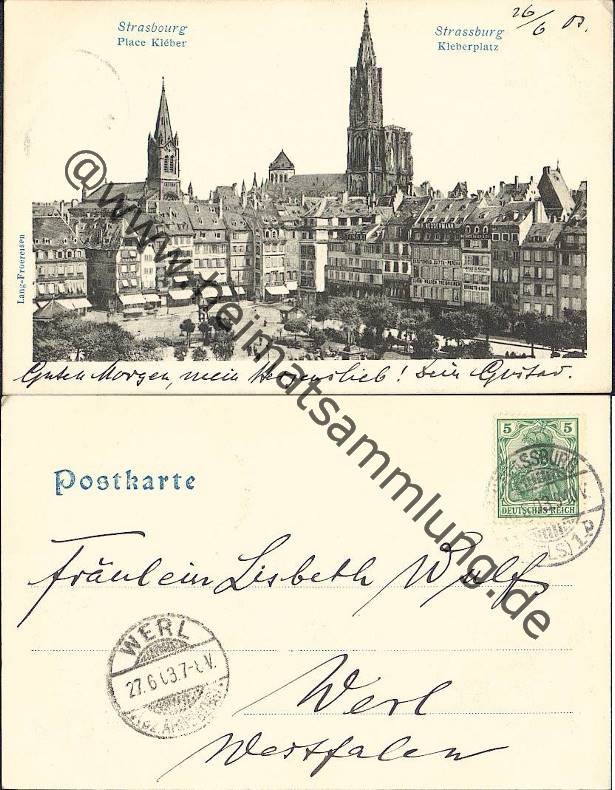 Strasbourg
Place Kléber
Strassburg
Kleberplatz
26/6 03.
Lang-Froereisen
Guten Morgen, mein Herzenslieb! Dein Gustav.
@www.heimatsammlung.de
Postkarte
5 5
DEUTSCHES REICH
Fräulein Lisbeth Wulf
WERL
27.6.03.7-8.V.
Werl
Westfalen